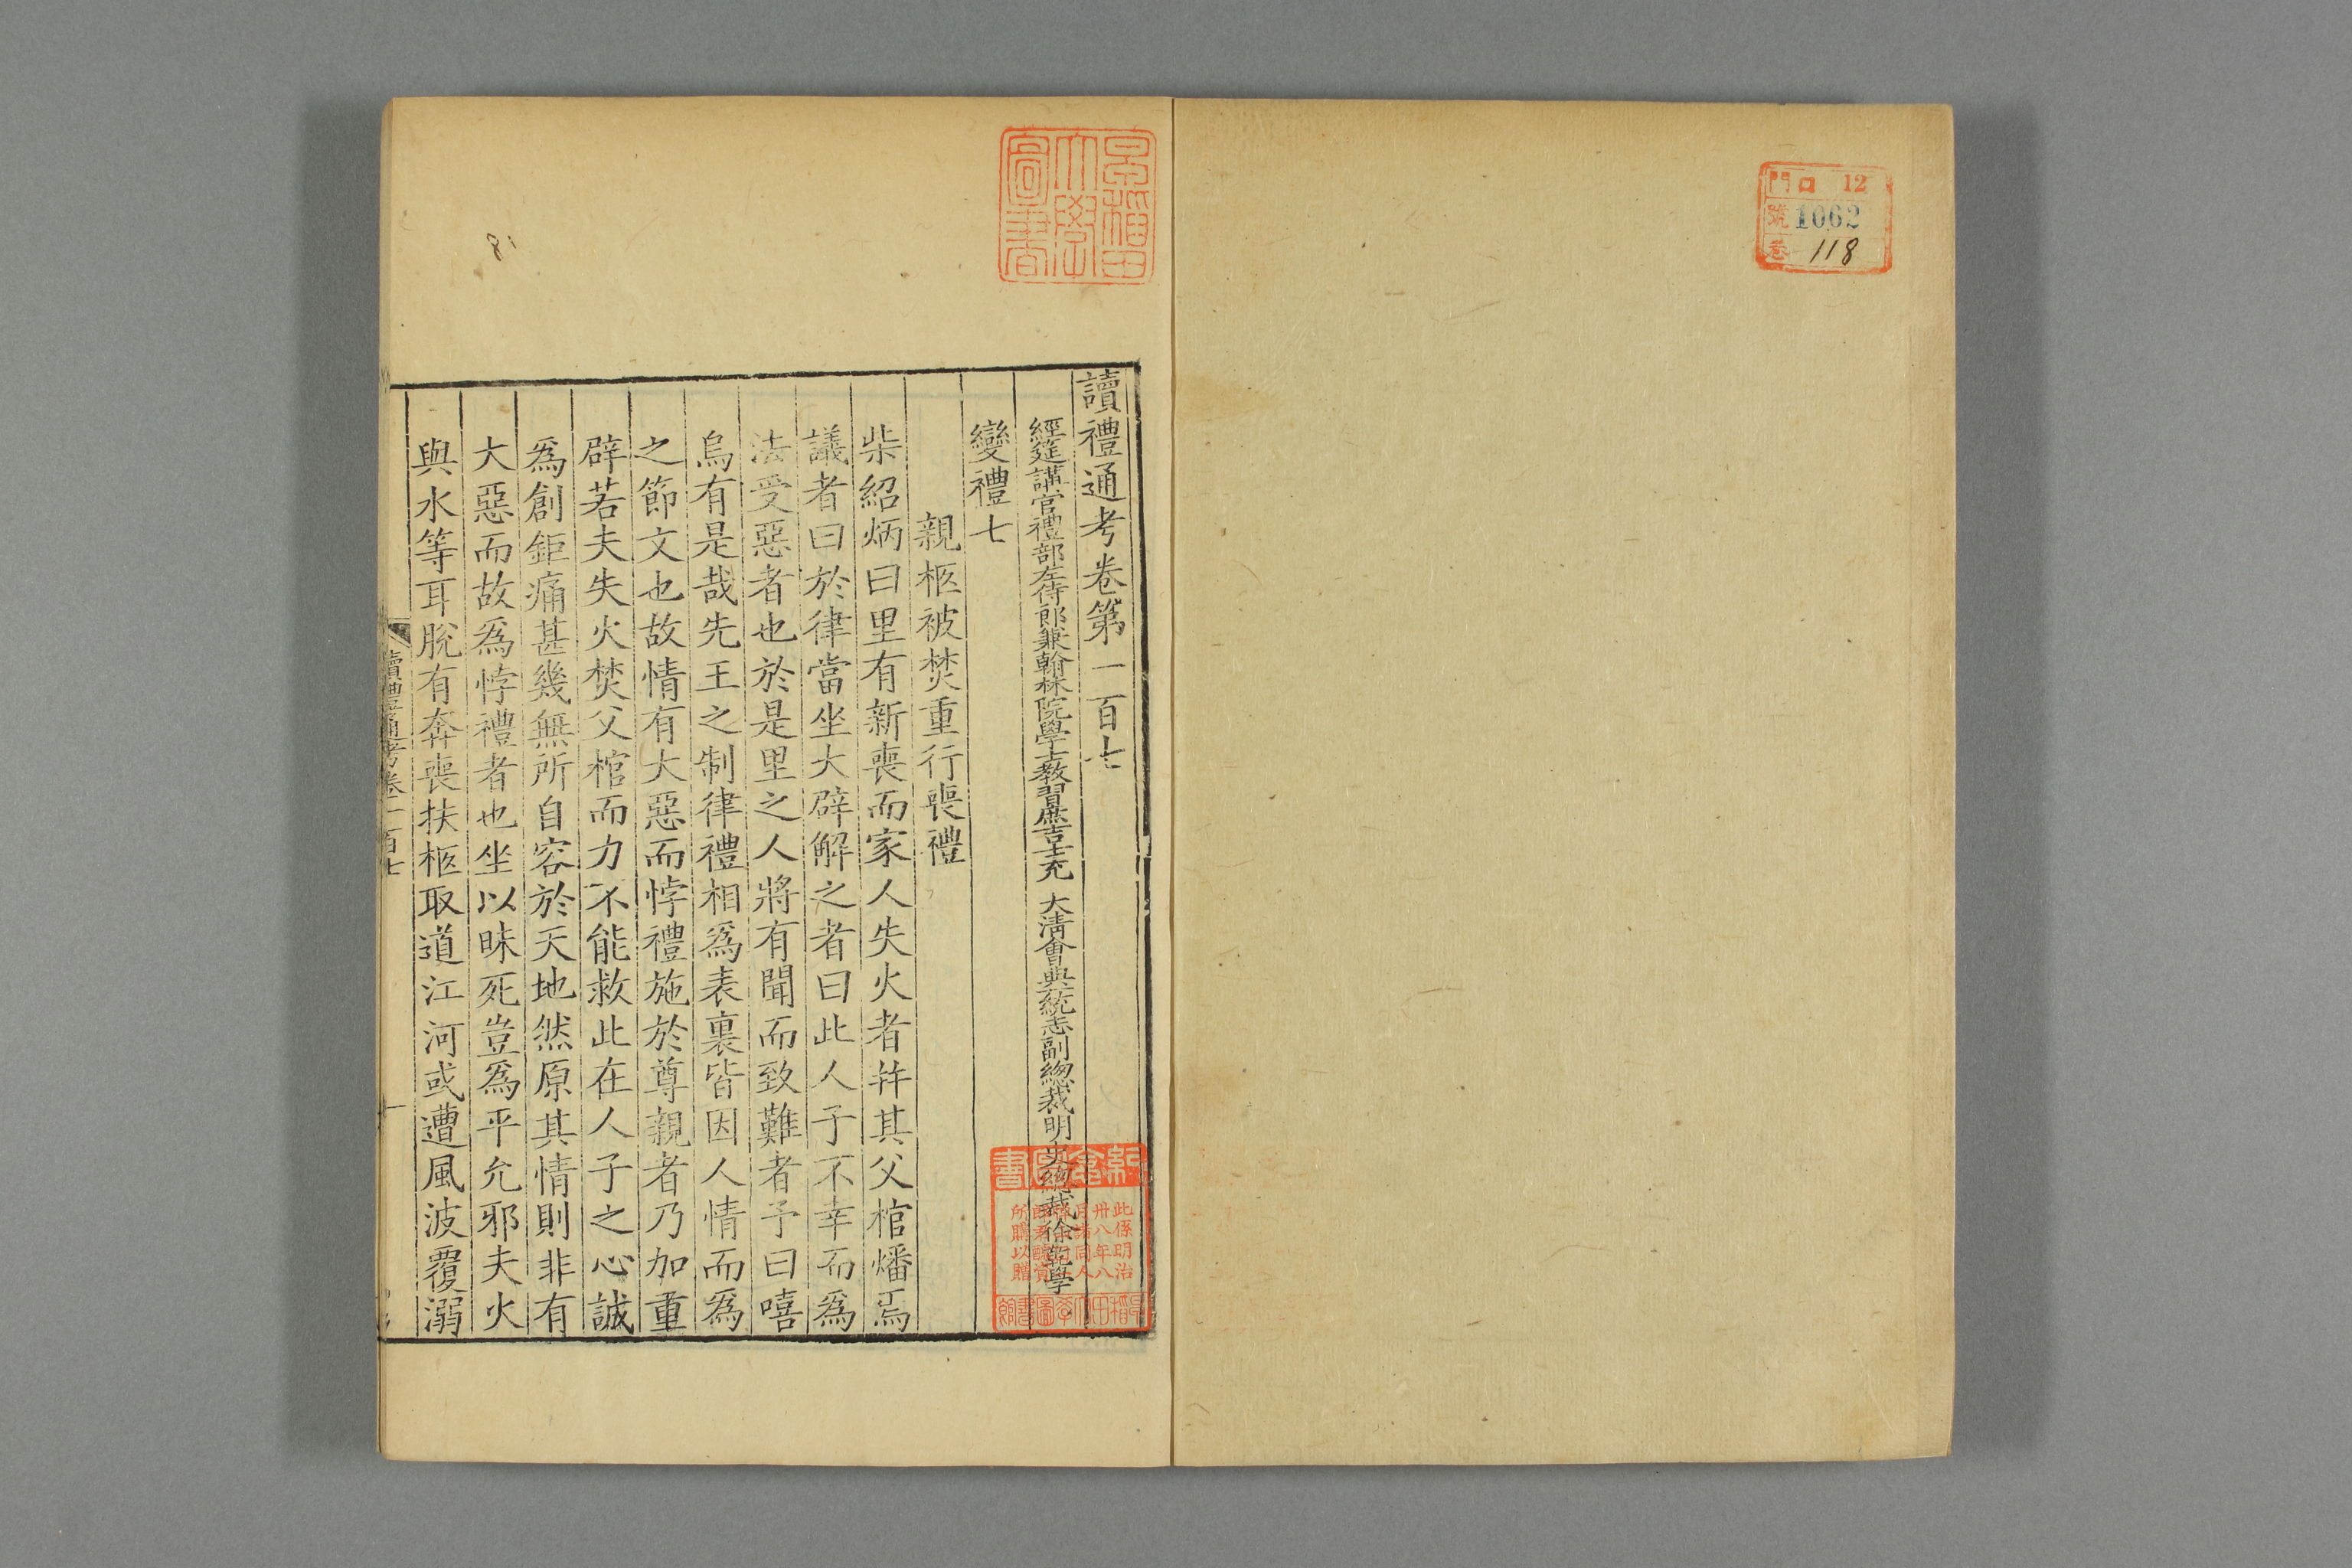 門 口 12
號 1062
卷 118
早稻田
大學
圖書
讀禮通考卷第一百七
經筵講官禮部左侍郎兼翰林院學士教習庶吉士充 大清會典一統志副總裁明史總裁徐乾學
變禮七
親柩被焚重行喪禮
柴紹炳曰里有新喪而家人失火者幷其父棺燔焉
議者曰於律當坐大辟解之者曰此人子不幸而爲
法受惡者也於是里之人將有聞而致難者予曰嘻
烏有是哉先王之制律禮相爲表裏皆因人情而爲
之節文也故情有大惡而悖禮施於尊親者乃加重
辟若夫失火焚父棺而力不能救此在人子之心誠
爲創鉅痛甚幾無所自容於天地然原其情則非有
大惡而故爲悖禮者也坐以昧死豈爲平允邪夫火
與水等耳脫有奔喪扶柩取道江河或遭風波覆溺
讀禮通考卷一百七
一
此係明治
卅八年八
所購以贈
早稻田大學圖書館